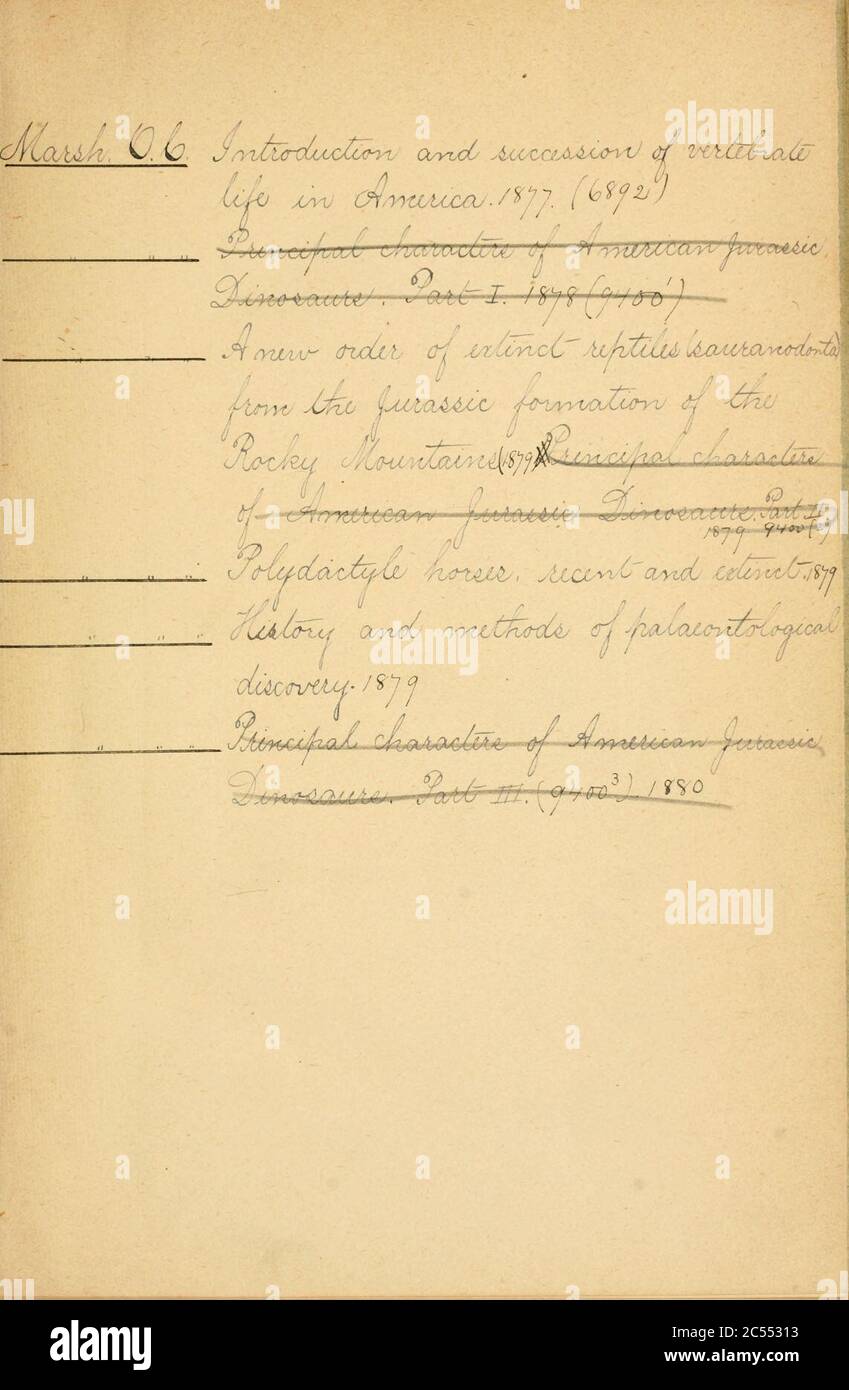 Marsh. O.C. Introduction and succession of vertebrate
life in America. 1877. (6892)
" " " Principal characters of American Jurassic
Dinosaurs. Part I. 1878 (9400')
" " " A new order of extinct reptiles (sauranodonta)
from the Jurassic formation of the
Rocky Mountains (1879) Principal characters
of American Jurassic Dinosaurs. Part
1879 9400
" " " Polydactyle horses, recent and extinct. 1879
" " " History and methods of palaeontological
discovery. 1879
" " " Principal characters of American Jurassic
Dinosaurs. Part III. (9400³). 1880
alamy
Image ID: 2C55313
www.alamy.com